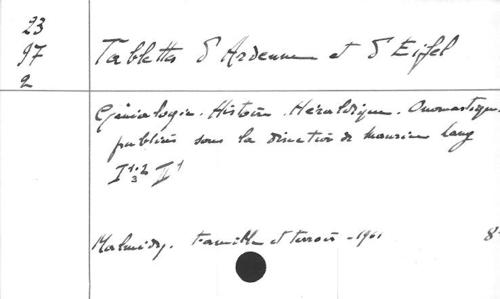 23
97
2
Tablettes d'Ardenne et d'Eifel
Généalogie. Histoire. Héraldique. Onomastique.
publiées sous la direction de Maurice Lang
I 1.2 3 II 1
Malmédy. Famille et terroir - 1961 8°